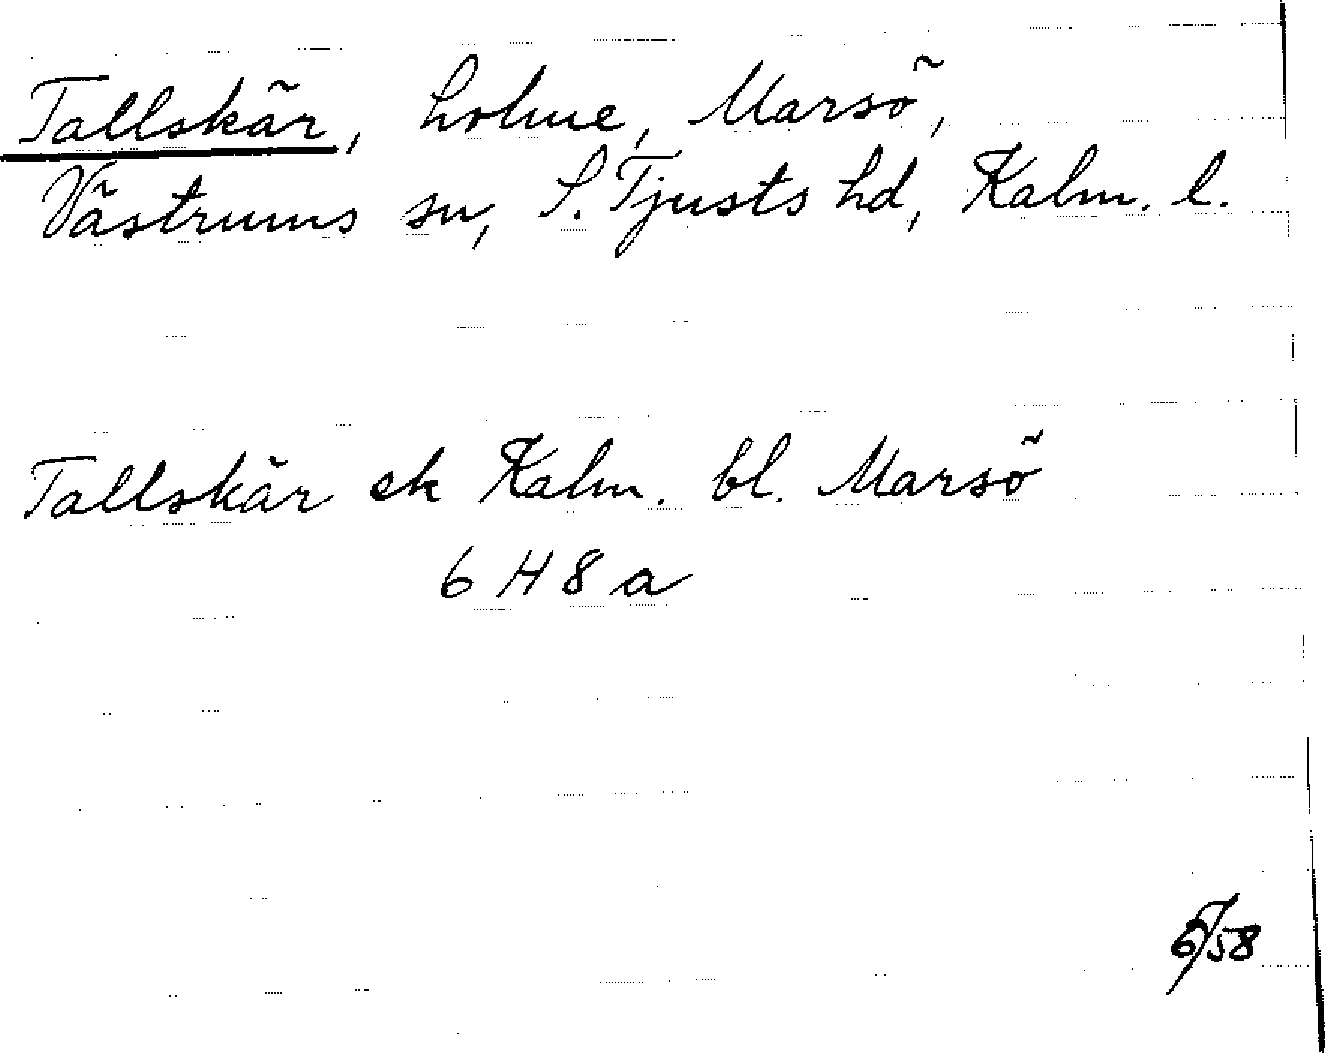 Tallskär, holme, Marsö,
Västrums sn, S. Tjusts hd, Kalm. l.
Tallskär ek Kalm. bl. Marsö
6 H 8 a
6/58